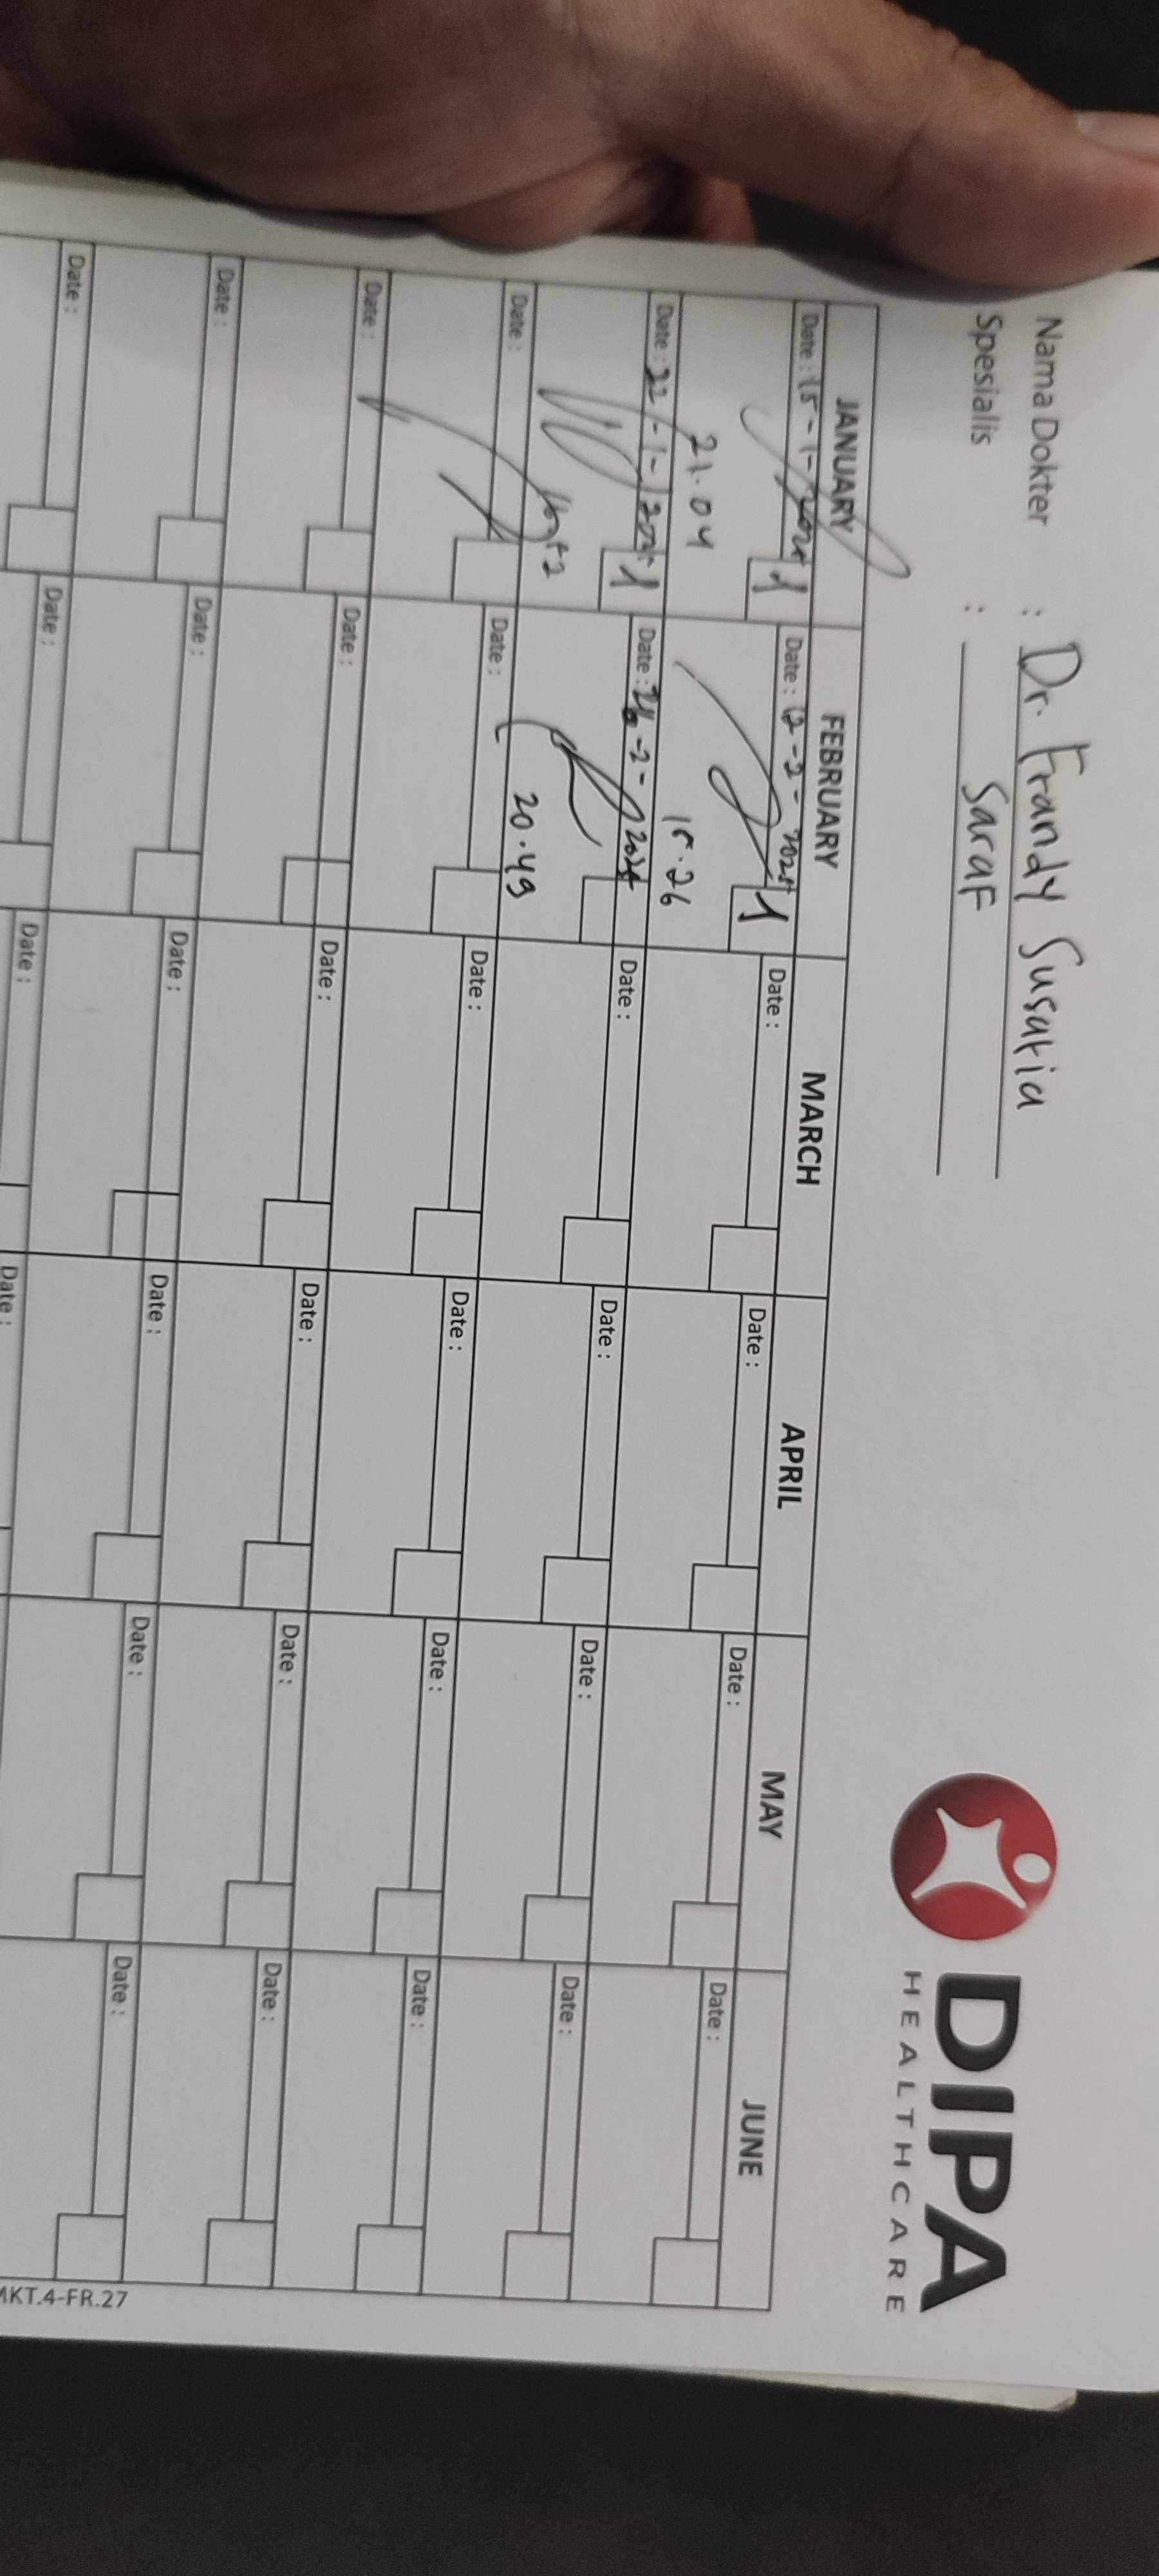 Nama Dokter : Dr. Frandy Susatia
Spesialis : Saraf
DIPA
HEALTHCARE
JANUARY FEBRUARY MARCH APRIL MAY JUNE
Date : 15-1- 1 Date : 12-2- 1 Date : Date : Date : Date :
21.04 15.26
Date : 22-1- 1 Date : 26-2-2025 Date : Date : Date : Date :
20.49
Date : Date : Date : Date : Date : Date :
Date : Date : Date : Date : Date : Date :
Date : Date : Date : Date : Date : Date :
Date : Date : Date : Date :
MKT.4-FR.27